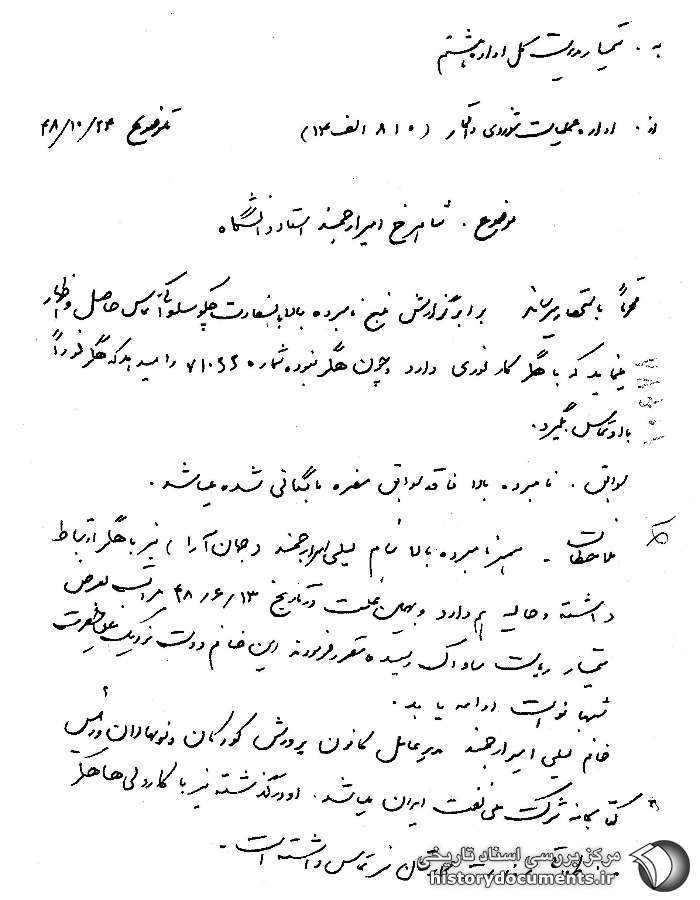 به . تیمسار ریاست کل اداره هشتم
از . اداره عملیات شوروی و اقمار (۸۱۵ الف ۱۴) تاریخ ۴۸/۱۰/۲۴
موضوع . شاهرخ امیرارجمند استاد دانشگاه
محترماً باستحضار میرساند برابر گزارش منبع نامبرده بالا با سفارت چکوسلواکی تماس حاصل و اظهار
مینماید که با هگر کار فوری دارد و چون هگر نبوده شماره را میدهد که هگر فوراً
با او تماس بگیرد.
سوابق . نامبرده بالا فاقد سوابق مضره بایگانی شده میباشد.
ملاحظات - همسر نامبرده بالا خانم لیلی امیرارجمند (جهان آرا) نیز با هگر ارتباط
داشته و حالیه هم دارد و بهمین علت در تاریخ ۴۸/۶/۱۳ مراتب بعرض
تیمسار ریاست ساواک رسیده مقرر فرمودند این خانم دوست نزدیک علیاحضرت
شهبانو است ادامه یابد.
خانم لیلی امیرارجمند مدیرعامل کانون پرورش کودکان و نوجوانان و رئیس
کتابخانه شرکت ملی نفت ایران میباشد. او در گذشته نیز با هگر
نیز تماس داشته است.
مرکز بررسی اسناد تاریخی
historydocuments.ir